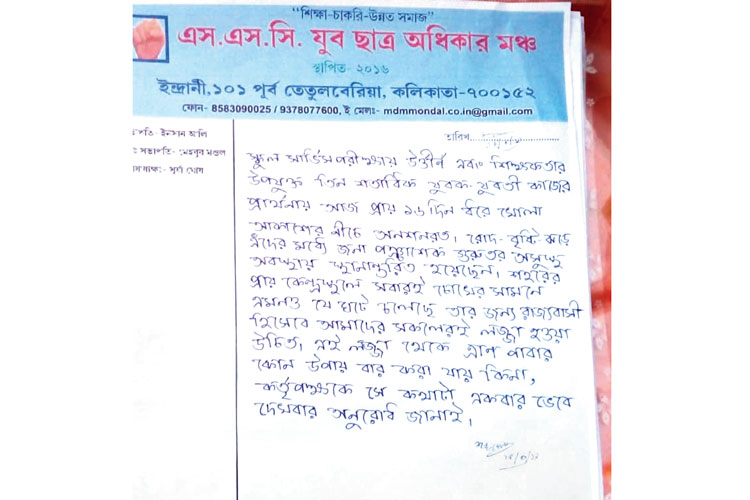 "শিক্ষা-চাকরি-উন্নত সমাজ"
এস.এস.সি. যুব ছাত্র অধিকার মঞ্চ
স্থাপিত- ২০১৬
ইন্দ্রানী,১০১ পূর্ব তেতুলবেরিয়া, কলিকাতা-৭০০১৫২
ফোন- 8583090025 / 9378077600, ই মেলঃ- mdmmondal.co.in@gmail.com
পতি- ইনসান আলি
সভাপতি-মেহবুব মণ্ডল
সূর্য ঘোষ
তারিখ
স্কুল সার্ভিস পরীক্ষায় উত্তীর্ণ এবং শিক্ষকতার
উপযুক্ত তিন শতাধিক যুবক-যুবতী কাজের
প্রার্থনায় আজ প্রায় ১৬ দিন ধরে খোলা
আকাশের নীচে অনশনরত। রোদ-বৃষ্টি-ঝড়ে
এঁদের মধ্যে জনা পঞ্চাশেক গুরুতর অসুস্থ
অবস্থায় স্থানান্তরিত হয়েছেন। শহরের
প্রায় কেন্দ্রস্থলে সবারই চোখের সামনে
এমনও যে ঘটে চলেছে তার জন্য রাজ্যবাসী
হিসেবে আমাদের সকলেরই লজ্জা হওয়া
উচিত। এই লজ্জা থেকে ত্রাণ পাবার
কোন উপায় বার করা যায় কিনা,
কর্তৃপক্ষকে সে কথাটা একবার ভেবে
দেখবার অনুরোধ জানাই।